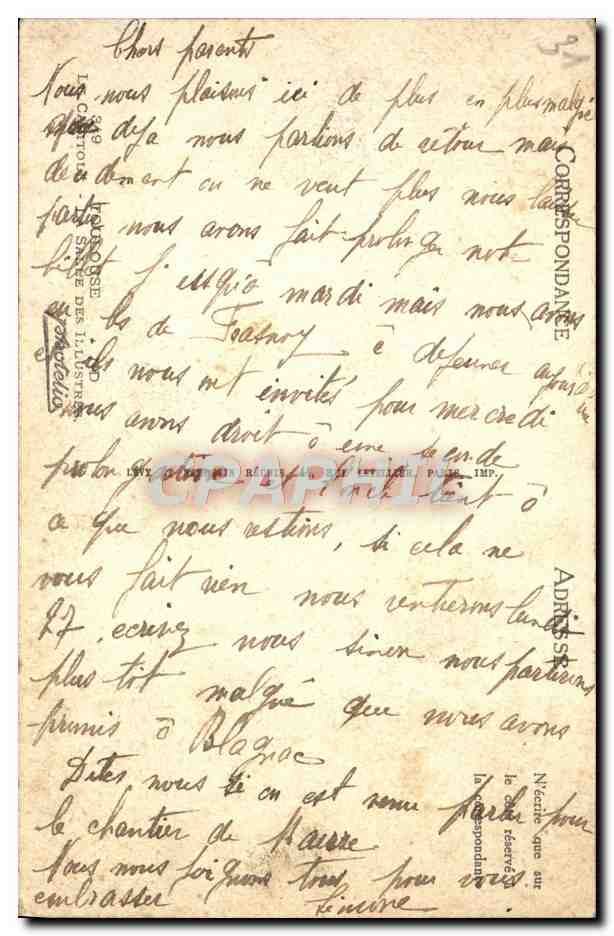 Chers parents
Nous nous plaisons ici de plus en plus malgré
que deja nous partions de retour mais
decidement on ne veut plus nous laisser
partir nous avons fait prolonger notre
billet j'usqu'à mardi mais nous avons
vu les de Frasnoy ê dejeuner aujourd'hui
et ils nous ont invités pour mercredi
nous avons droit ô une seconde
prolongation et tient ô
ce que nous restions, si cela ne
vous fait rien nous rentrerons lundi
27, ecrivez nous sinon nous partirons
plus tôt malgré que nous avons
promis ô Blagnac
Dites nous si on est venu parler pour
le chantier de Maurre
Nous nous joignons tous pour vous
embrasser Simone
31
CORRESPONDANCE
ADRESSE
N'écrire que sur
le côté réservé à
la correspondance
219 TOULOUSE
LE CAPITOLE - LA SALLE DES ILLUSTRES
LÉVY ET NEURDEIN RÉUNIS, 44, RUE LETELLIER, PARIS, IMP.
CPAPHIL